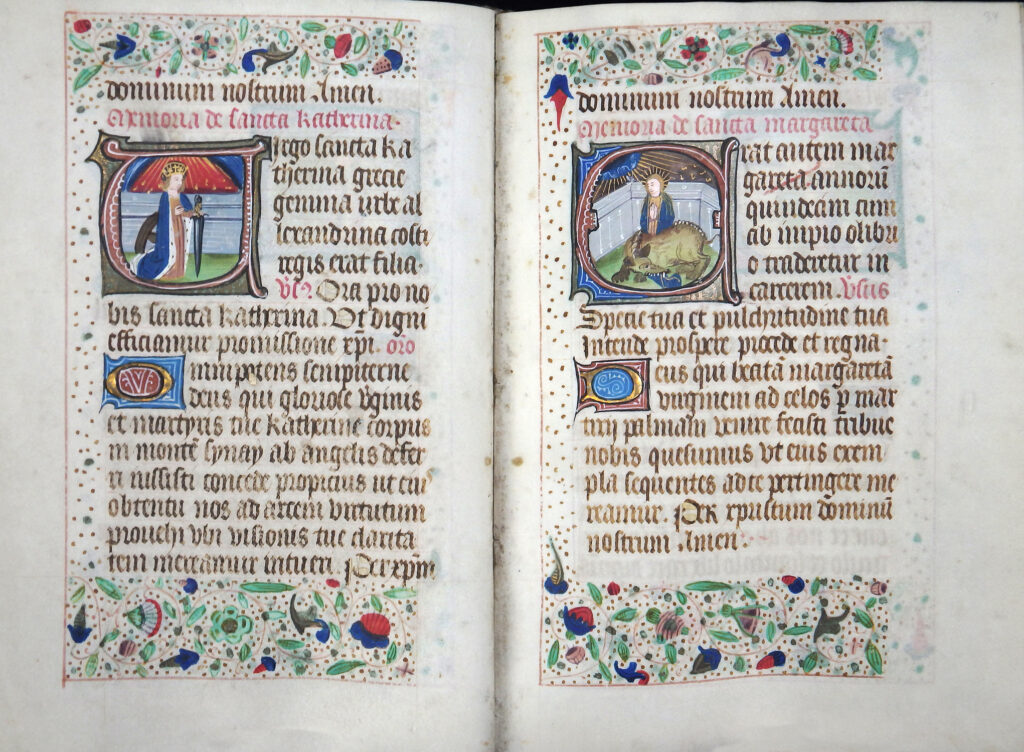 dominum nostrum Amen.
Memoria de sancta Katherina.
Virgo sancta ka
therina grecie
gemma urbe al
lexandrina costi
regis erat filia.
Vs Ora pro no
bis sancta Katherina. Ut digni
efficiamur promissione xpi. oro
Omnipotens sempiterne
deus qui gloriose virginis
et martyris tue Katherine corpus
in monte synay ab angelis defer
ri iussisti concede propicius ut eiu
obtentu nos ad arcem virtutum
prouehi vbi visionis tue clarita
tem mereamur intueri. Per xpm
34
dominum nostrum Amen.
Memoria de sancta margareta
Erat autem mar
gareta annorū
quindecim cum
ab impio olibri
o traderetur in
carcerem. Vsus
Specie tua et pulchritudine tua
Intende prospere procede et regna.
Deus qui beatā margaretā
virginem ad celos p mar
tirij palmam venire fecisti tribue
nobis quesumus vt eius exem
pla sequentes ad te pertingere me
reamur. Per xpristum dominū
nostrum Amen.